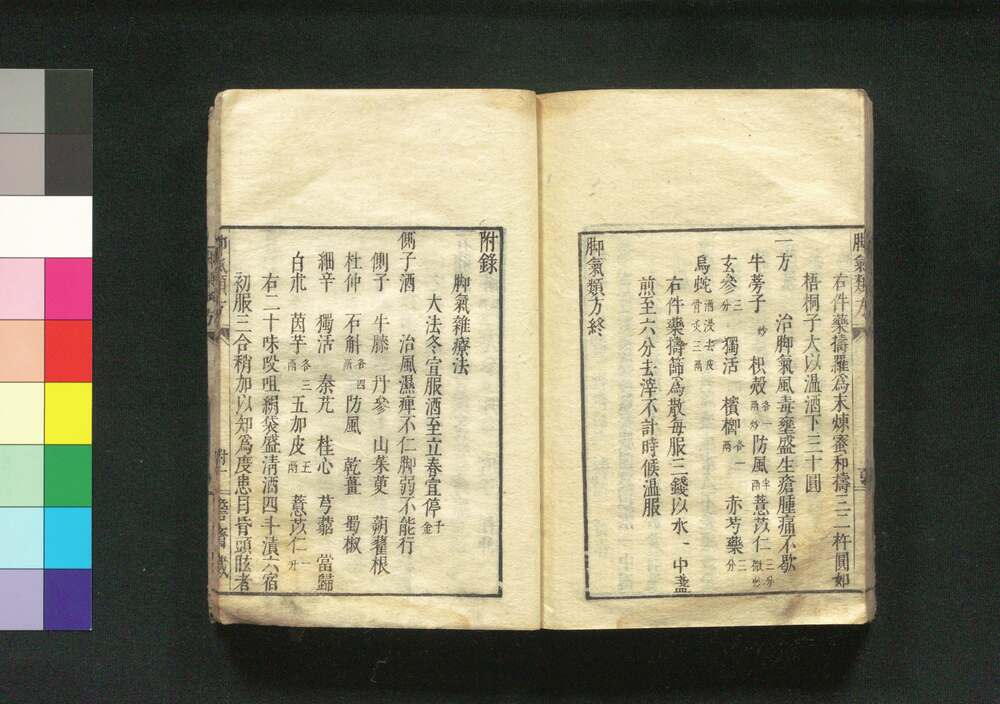 脚氣類方
右件藥擣羅爲末煉蜜和擣三二杵圓如
梧桐子大以温酒下三十圓
一方 治脚氣風毒壅盛生瘡腫痛不歇
牛蒡子炒 枳殻各一兩炒 防風半兩 薏苡仁三分微炒
玄參三分 獨活 檳榔各一兩 赤芍藥二分
烏蛇酒浸去皮骨炙三兩
右件藥擣篩爲散每服三錢以水一中盞
煎至六分去滓不計時候温服
脚氣類方終
附錄
脚氣雜療法
大法冬宜服酒至立春宜停千金
側子酒 治風濕痺不仁脚弱不能行
側子 牛膝 丹參 山茱萸 蒴藋根
杜仲 石斛各四兩 防風 乾薑 蜀椒
細辛 獨活 秦艽 桂心 芎藭 當歸
白朮 茵芋各三兩 五加皮五兩 薏苡仁一升
右二十味㕮咀絹袋盛清酒四斗漬六宿
初服三合稍加以知爲度患目昏頭眩者
附一